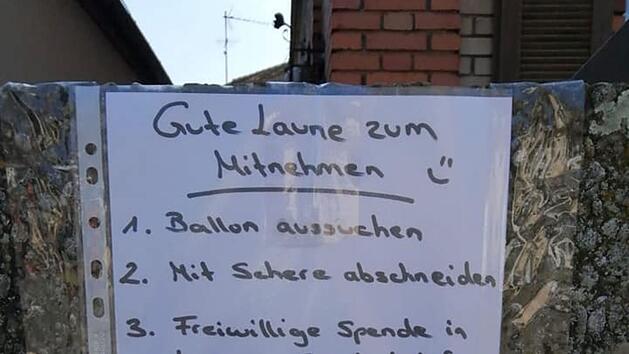 Gute Laune zum
Mitnehmen
1. Ballon aussuchen
2. Mit Schere abschneiden
3. Freiwillige Spende in